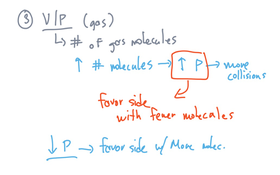 ③ V/P (gas)
↳ # of gas molecules
↑ # molecules → ↑ P → more collisions
favor side
with fewer molecules
↓ P → favor side w/ More molec.